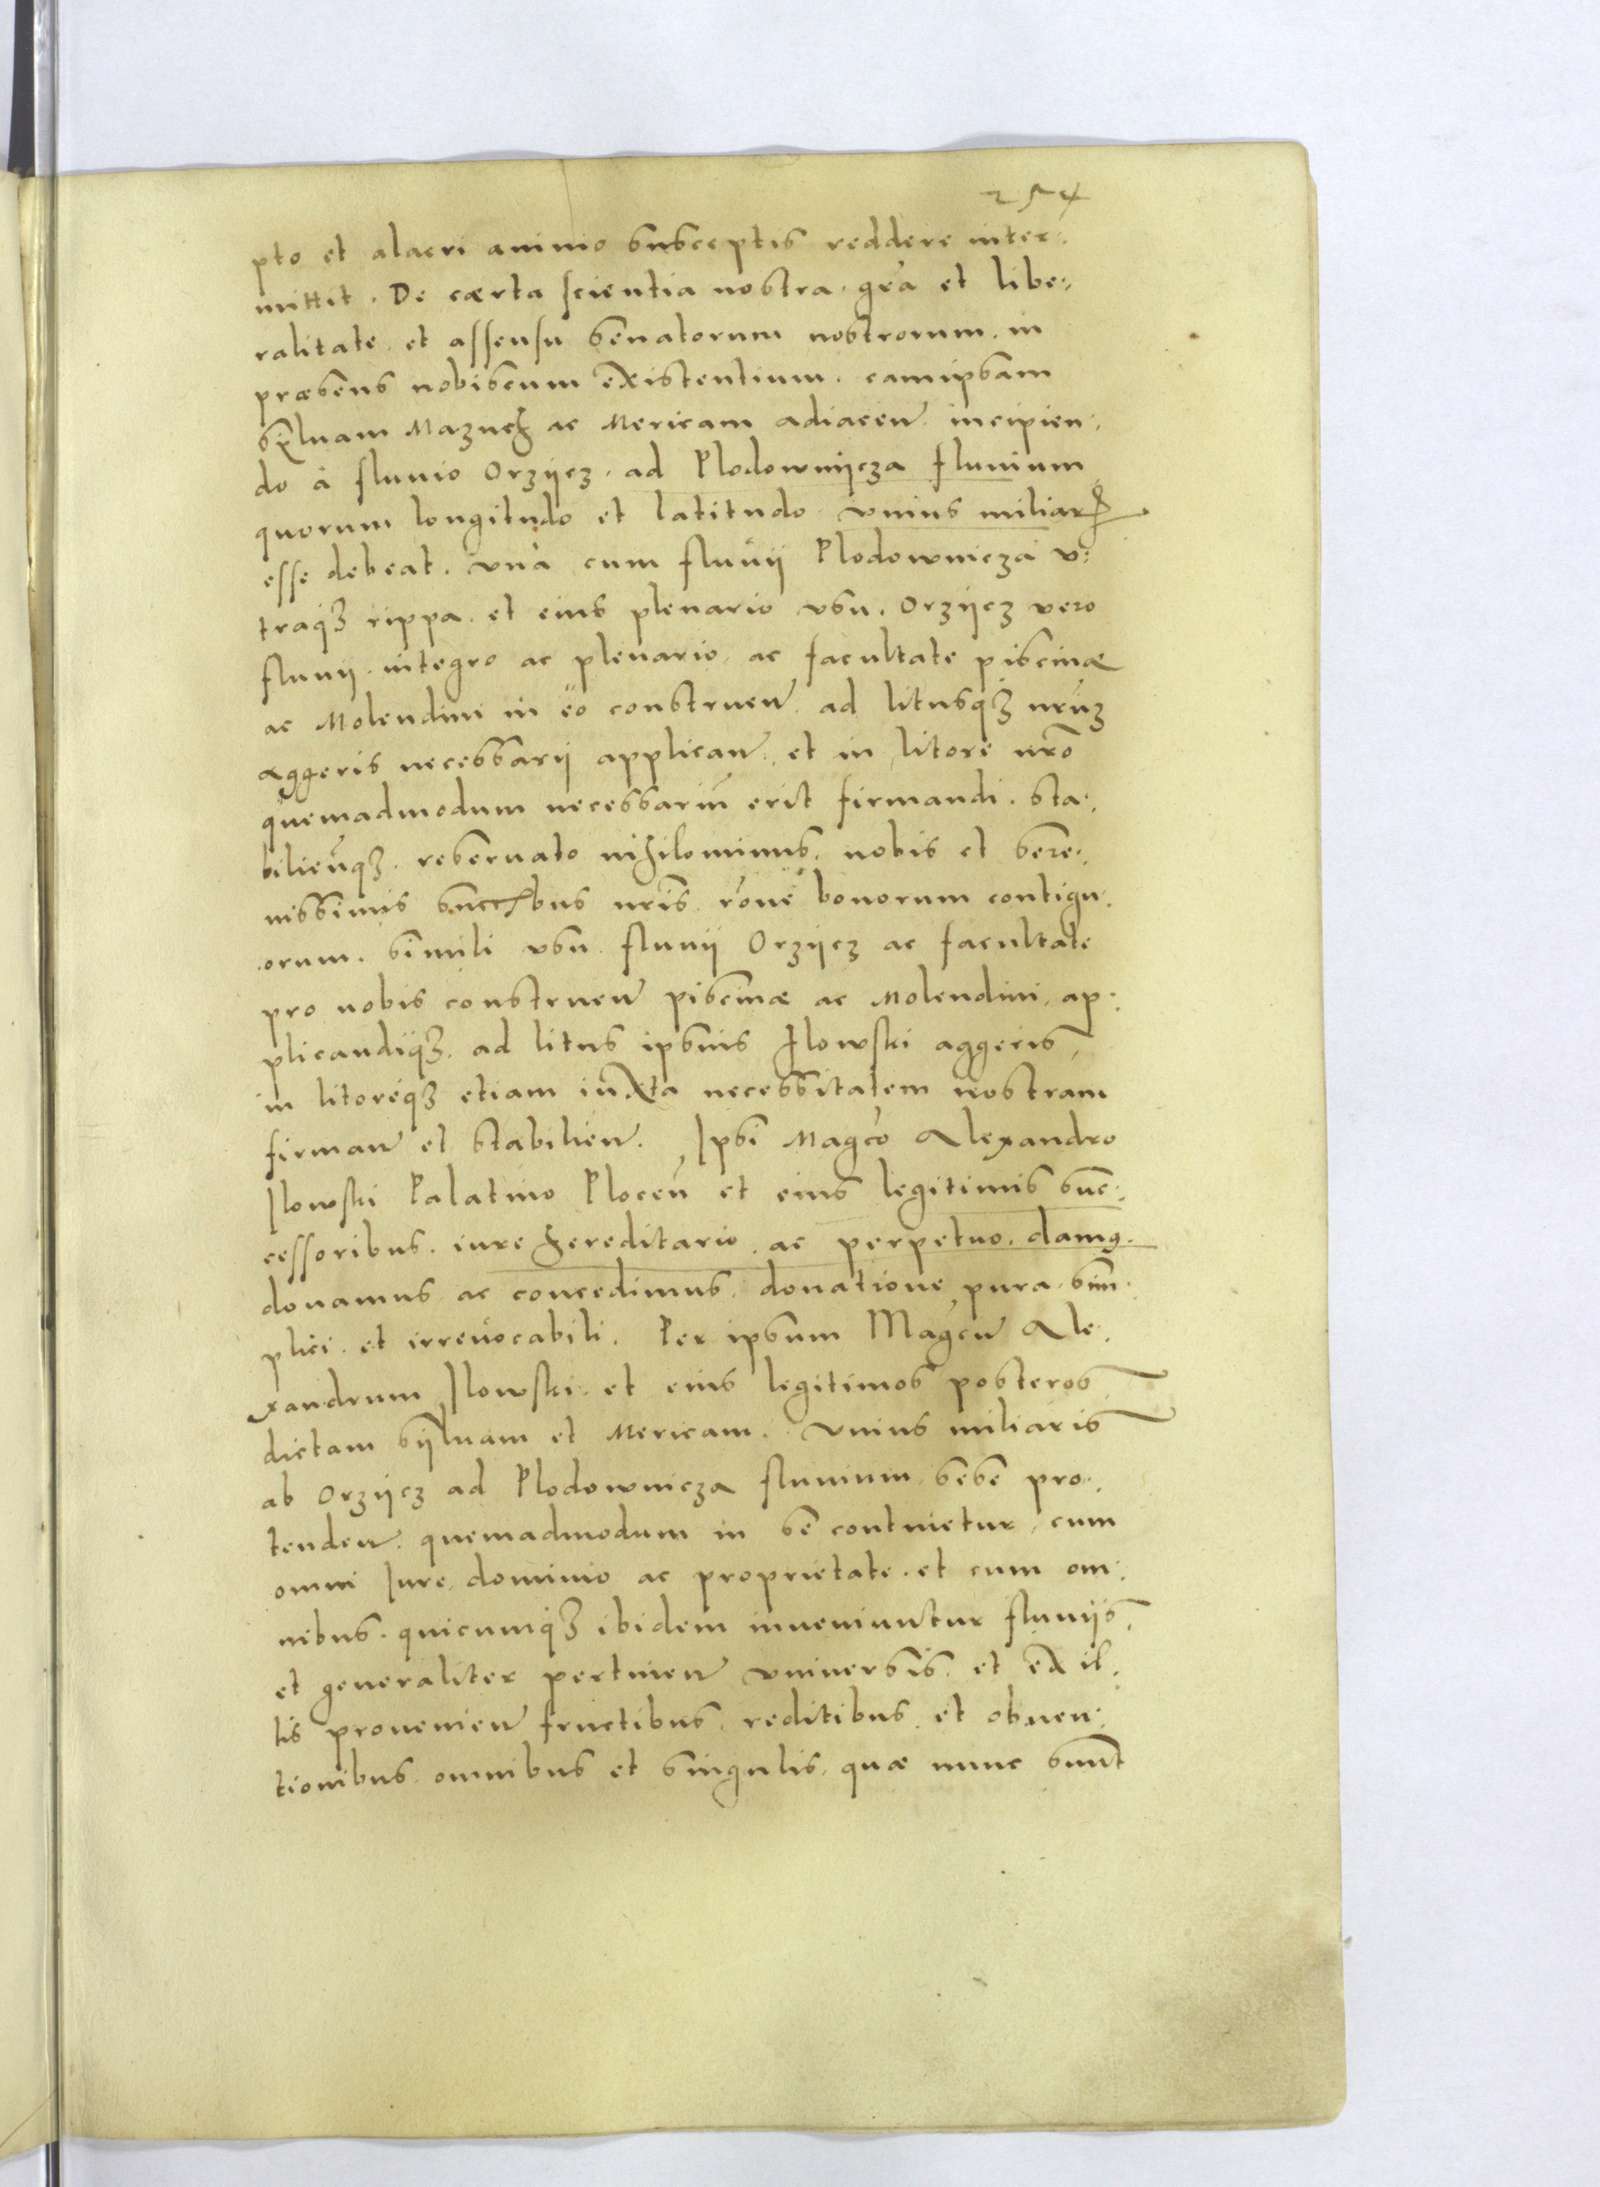 254
pto et alacri animo susceptis reddere inter,
mittit. De cærta scientia nostra, gra et libe,
ralitate, et assensu Senatorum nostrorum, in
præsens nobiscum existentium, eamipsam
Syluam Mazuch ac Mericam adiacen incipien,
do à fluuio Orzijcz, ad Plodownijcza fluuium
quorum longitudo et latitudo vnius miliar
esse debeat, vna cum fluuij Plodownicza v,
traqz rippa, et eius plenario vsu, Orzijcz vero
fluuij, integro ac plenario, ac facultate piscinæ
ac Molendini in eo construen, ad litusqz nrum
aggeris necessarij applican, et in litore nro
quemadmodum necessarium erit firmandi, sta,
biliendqz, reseruato nihilominus, nobis et Sere,
nissimis succrbus nris, rone bonorum contigu,
orum, simili vsu fluuij Orzijcz ac facultate
pro nobis construen piscinæ ac Molendini, ap,
plicandiqz, ad litus ipsius Ilowski aggeris,
in litoreqz etiam iuxta necessitatem nostram
firman et stabilien. Ipsi Magco Alexandro
Ilowski Palatino Plocen et eius legitimis suc,
cessoribus, iure hereditario, ac perpetuo, damus,
donamus ac concedimus, donatione pura, sim,
plici, et irreuocabili. Per ipsum Magcum Ale,
xandrum Ilowski, et eius legitimos posteros
dictam syluam et Mericam, vnius miliaris
ab Orzijcz ad Plodownicza fluuium sese pro,
tenden, quemadmodum in se continetur, cum
omni Iure, dominio ac proprietate, et cum om,
nibus, quicumqz ibidem inueniuntur fluuijs,
et generaliter pertinen vniuersis, et ex il,
lis prouenien fructibus, reditibus, et obuen,
tionibus, omnibus et singulis, quæ nunc sunt